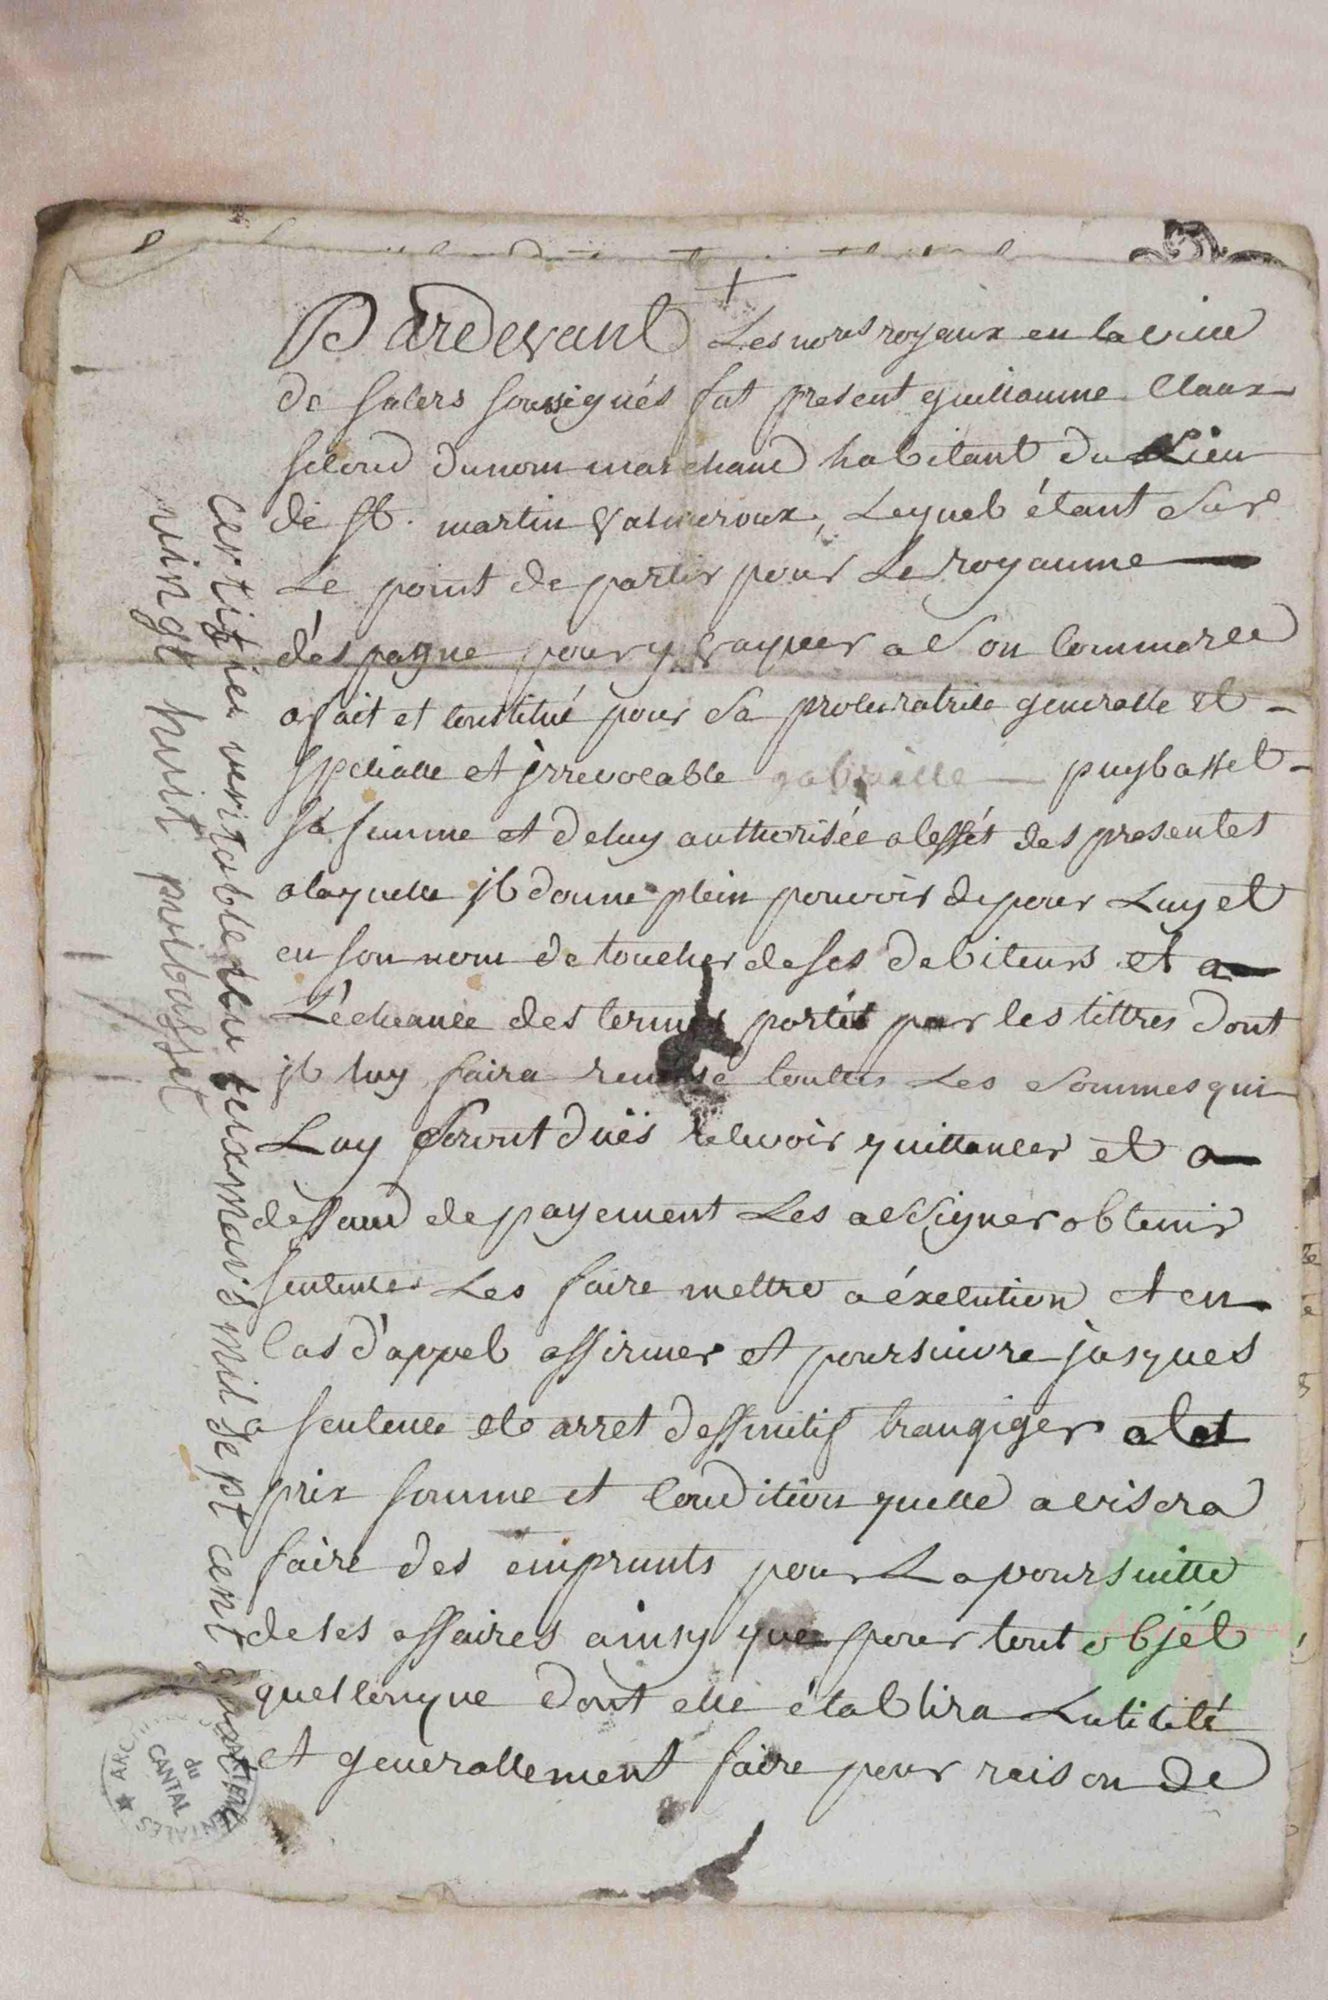 Pardevant Les nores royaux en la ville
de salers soussignés fut present guillaume Claux
second du nom marchand habitant du Lieu
de St. martin valmeroux, Lequel étant Sur
Le point de partir pour Le royaume
d'éspagne pour y vaquer a Son Commerce
a fait et Constitué pour Sa procuratrice generalle et
specialle et jrrevocable gabrielle puybasset
sa femme et de luy authorisée a leffét des presentes
a laquelle jl donne plein pouvoir de pour Luy et
en son nom de toucher de ses debiteurs et a
L'écheance des termes portés par les tittres dont
jl luy faira remise touttes Les Sommes qui
Luy Seront duës recevoir quittancer et a
deffaud de payement Les assigner obtenir
sentences Les faire mettre a éxecution et en
Cas d'appel affirmer et poursuivre jusques
a sentence et arret deffinitif transiger a tel
prix somme et Condition quelle avisera
faire des emprunts pour La poursuitte
de ses affaires ainsy que pour tout objét
quelconque dont elle établira Lutilité
et generallement faire pour raison de
certiffiet veritable ceu seixmars mil sept cent quatre
vingt huit puibasset
ARCHIVES DÉPARTEMENTALES
du
CANTAL